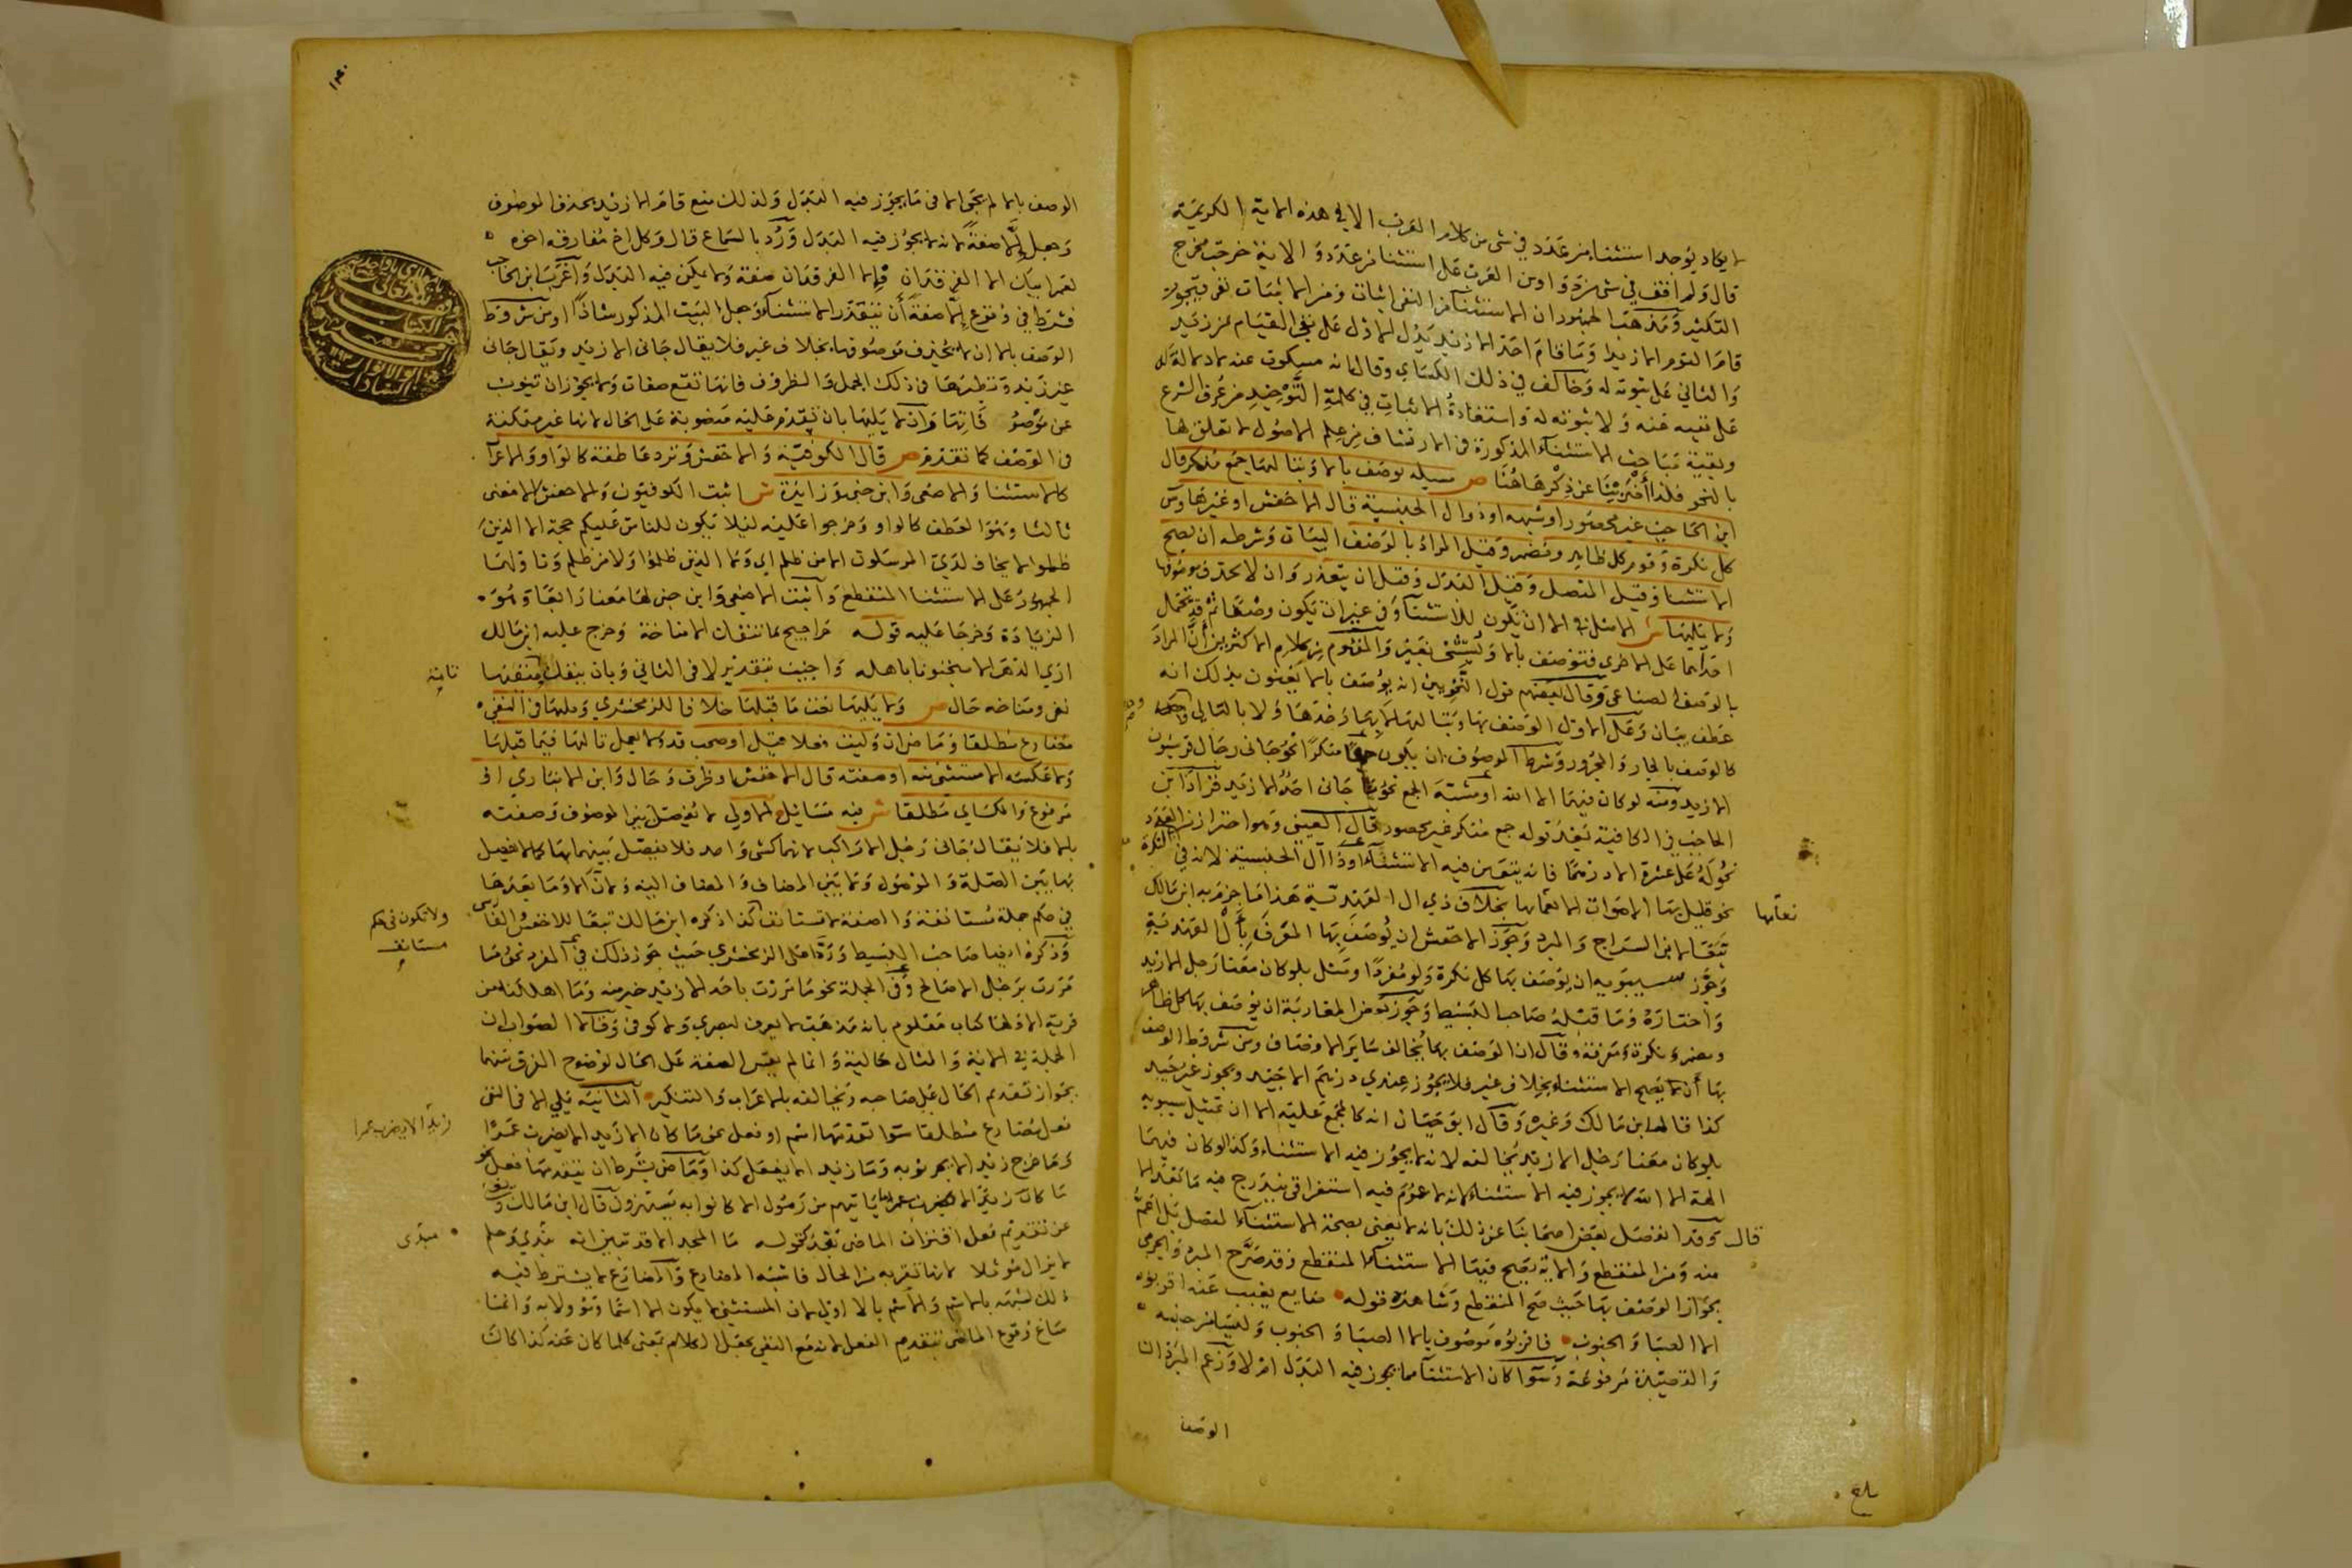 لا يكاد يوجد استثناء من عدد في شي من كلام العرب الا في هذه الاية الكريمة
قال ولم اقف في شي من دواوين العرب على استثناء من عدد والاية خرجت مخرج
التكثير ومذهب الجمهور ان الاستثناء من النفي اثبات ومن الاثبات نفي فنحو
قام القوم الا زيدا وما قام احد الا زيد يدل الاول على نفي القيام عن زيد
والثاني على ثبوته له وخالف في ذلك الكسائي وقال انه مسكوت عنه لا دلالة له
على نفيه عنه ولا ثبوته له واستفادة الاثبات في كلمة التوحيد من عرف الشرع
وبقية مباحث الاستثناء المذكورة في الارتشاف من علم الاصول لا تعلق لها
بالنحو فلذا أضربنا عن ذكرها هنا ص مسئلة يوصف بالا وبتاليها جمع منكر قال
ابن الحاجب غير محصور او شبهه او ذو ال الجنسية قال الاخفش او غيرها وس
كل نكرة وقوم كل ظاهر ومضمر وقيل المراد بالوصف البيان وشرطه ان يصح
الاستثناء وقيل المتصل وقيل البدل وقيل ان يتعذر وان لا يحذف موصوفها
ولا يليها ش الاصل في الا ان تكون للاستثناء وفي غير ان تكون وصفا ثم قد تحمل
احداهما على الاخرى فتوصف بالا ويستثنى بغير والمفهوم من كلام الاكثرين أن المراد
بالوصف الصناعي وقال بعضهم قول النحويين انه يوصف بالا يعنون بذلك انه
عطف بيان وعلى الاول الوصف بها وبتاليها لا بها وحدها ولا بالتالي وحده
كالوصف بالجار والمجرور وشرط الموصوف ان يكون جمعا منكرا نحو جاني رجال قرشيون
الا زيد ومنه لو كان فيهما الهة الا الله او مشبه الجمع نحو ما جاني احد الا زيد فزاد ابن
الحاجب في الكافية بعد قوله جمع منكر غير محصور قال العيني وهو احتراز من العدد
نحو له علي عشرة الا درهما فانه يتعين فيه الاستثناء او ذا ال الجنسية لانه في النكرة
نحو قليل بها الاصوات الا بغامها بخلاف ذي ال العهدية هذا ما جزم به ابن مالك
تبعا لابن السراج والمبرد وجوز الاخفش ان يوصف بها المعرف بأل العهدية
وجوز سيبويه ان يوصف بها كل نكرة ولو مفردا ومثل بلو كان معنا رجل الا زيد
واختاره وما قبله صاحب البسيط وجوز قوم من المغاربة ان يوصف بها كل ظاهر
ومضمر ونكرة ومعرفة وقال ان الوصف بها يخالف سائر الاوصاف ومن شروط الوصف
بها أن يصح الاستثناء بخلاف غير فلا يجوز عندي درهم الا جيد ويجوز غير جيد
كذا قاله ابن مالك وغيره وقال ابو حيان انه كالمجمع عليه الا ان تمثيل سيبويه
بلو كان معنا رجل الا زيد يخالفه لانه لا يجوز فيه الاستثناء وكذا لو كان فيهما
الهة الا الله لا يجوز فيه الاستثناء لانه لا عموم فيه استغراقي يندرج فيه ما بعد الا
قال وقد انفصل بعض اصحابنا عن ذلك بانه لا يعني بصحة الاستثناء المتصل بل اعم
منه ومن المنقطع والاية يصح فيها الاستثناء المنقطع وقد صرح المبرد والجرمي
بجواز الوصف بها حيث صح المنقطع وشاهده قوله
الا الصبا والجنوب فاقربوه موصوف بالا الصبا والجنوب وليسا من جنسه
والقصيدة مرفوعة وسوا كان الاستثناء مما يجوز فيه البدل ام لا وزعم المبرد ان
الوصف
نغامها
بلغ
الوصف بالا لم يجئ الا في ما يجوز فيه البدل ولذلك منع قام الا زيد بحذف الموصوف
وجعل إلا صفة لانه لا يجوز فيه البدل ورد بالسماع قال وكل اخ مفارقه اخوه
لعمر ابيك الا الفرقدان فالا الفرقدان صفة ولا يمكن فيه البدل واغرب ابن الحاجب
فشرط في وقوع إلا صفة أن يتعذر الاستثناء وجعل البيت المذكور شاذا ومن شروط
الوصف بالا ان لا يحذف موصوفها بخلاف غير فلا يقال جاني الا زيد ويقال جاني
غير زيد ونظيرها في ذلك الجمل والظروف فانها تقع صفات ولا يجوز ان تنوب
عن موصوفاتها وان لا يليها بان تقدم عليه منصوبة على الحال لانها غير متمكنة
في الوصف كما تقدم ص قال الكوفية والاخفش وترد عاطفة كالواو والاعرا
كالاستثنا والاصمعي وابن جني وزايدة ش اثبت الكوفيون والاخفش لالا معنى
ثالثا وهو العطف كالواو وخرجوا عليه لئلا يكون للناس عليكم حجة الا الذين
ظلموا لا يخاف لدي المرسلون الا من ظلم اي ولا الذين ظلموا ولا من ظلم وتاولهما
الجمهور على الاستثنا المنقطع وأثبت الاصمعي وابن جني لها معنا رابعا وهو
الزيادة وخرجا عليه قوله حراجيج ما تنفك الا مناخة وخرج عليه ابن مالك
ارى الدهر الا منجنونا باهله واجيب بتقدير لا في الثاني وبان بنفك منفيها
نفي ومناخه حال ص ولا يليها نعت ما قبلها خلافا للزمخشري ويليها في النفي
مضارع مطلقا وماض ان وليت فعلا قيل او صحب قد ولا يعمل تاليها فيما قبلها
ولا عكسه الا مستثنى منه او صفته قال الاخفش او ظرف وحال وابن الانباري او
مرفوع والكسائي مطلقا ش فيه مسائل الاولى لا يفصل بين الموصوف وصفته
بالا فلا يقال جاني رجل الا راكب لانهما كشي واحد فلا يفصل بينهما بها كما لا يفصل
بها بين الصلة والموصول ولا بين المضاف والمضاف اليه ولان الا وما بعدها
في حكم جملة مستانفة والصفة لا تستانف كذا ذكره ابن مالك تبعا للاخفش والفارسي
وذكره ايضا صاحب البسيط ورد على الزمخشري حيث جوز ذلك في المفرد نحو ما
مررت برجل الا صالح وفي الجملة نحو ما مررت باحد الا زيد خير منه وما اهلكنا من
قرية الا ولها كتاب معلوم بانه مذهب لا يعرف لبصري ولا كوفي وقالا الصواب ان
الجملة في الاية والمثال حالية وانما لم يقس الصفة على الحال لوضوح الفرق بينهما
بجواز تقديم الحال على صاحبه ويخالفه بالاعراب والتنكير الثانية يلي الا في النفي
فعل مضارع مطلقا سوا تقدمها اسم او فعل نحو ما كان زيد الا يضرب عمرا
وما خرج زيد الا يجر ثوبه وما زيد الا يفعل كذا وماض بشرط ان يتقدمها فعل نحو
ما ياتيهم من رسول الا كانوا به يستهزون قال ابن مالك ويغني
عن تقديم فعل اقتران الماضي بقد كقوله ما المجد الا قد تبين انه بندي وحلم
لا يزال مؤثلا لانها تقربه من الحال فاشبه المضارع والمضارع لا يشترط فيه
ذلك لشبهه بالاسم والاسم بالا اولى لان المستثنى لا يكون الا اسما او مؤولا به وانما
ساغ وقوع الماضي بتقديم الفعل لانه مع النفي يجعل الكلام بمعنى كلما كان عنه كذا كان
ولا تكون في حكم
مستانف
زيد الا يضرب عمرا